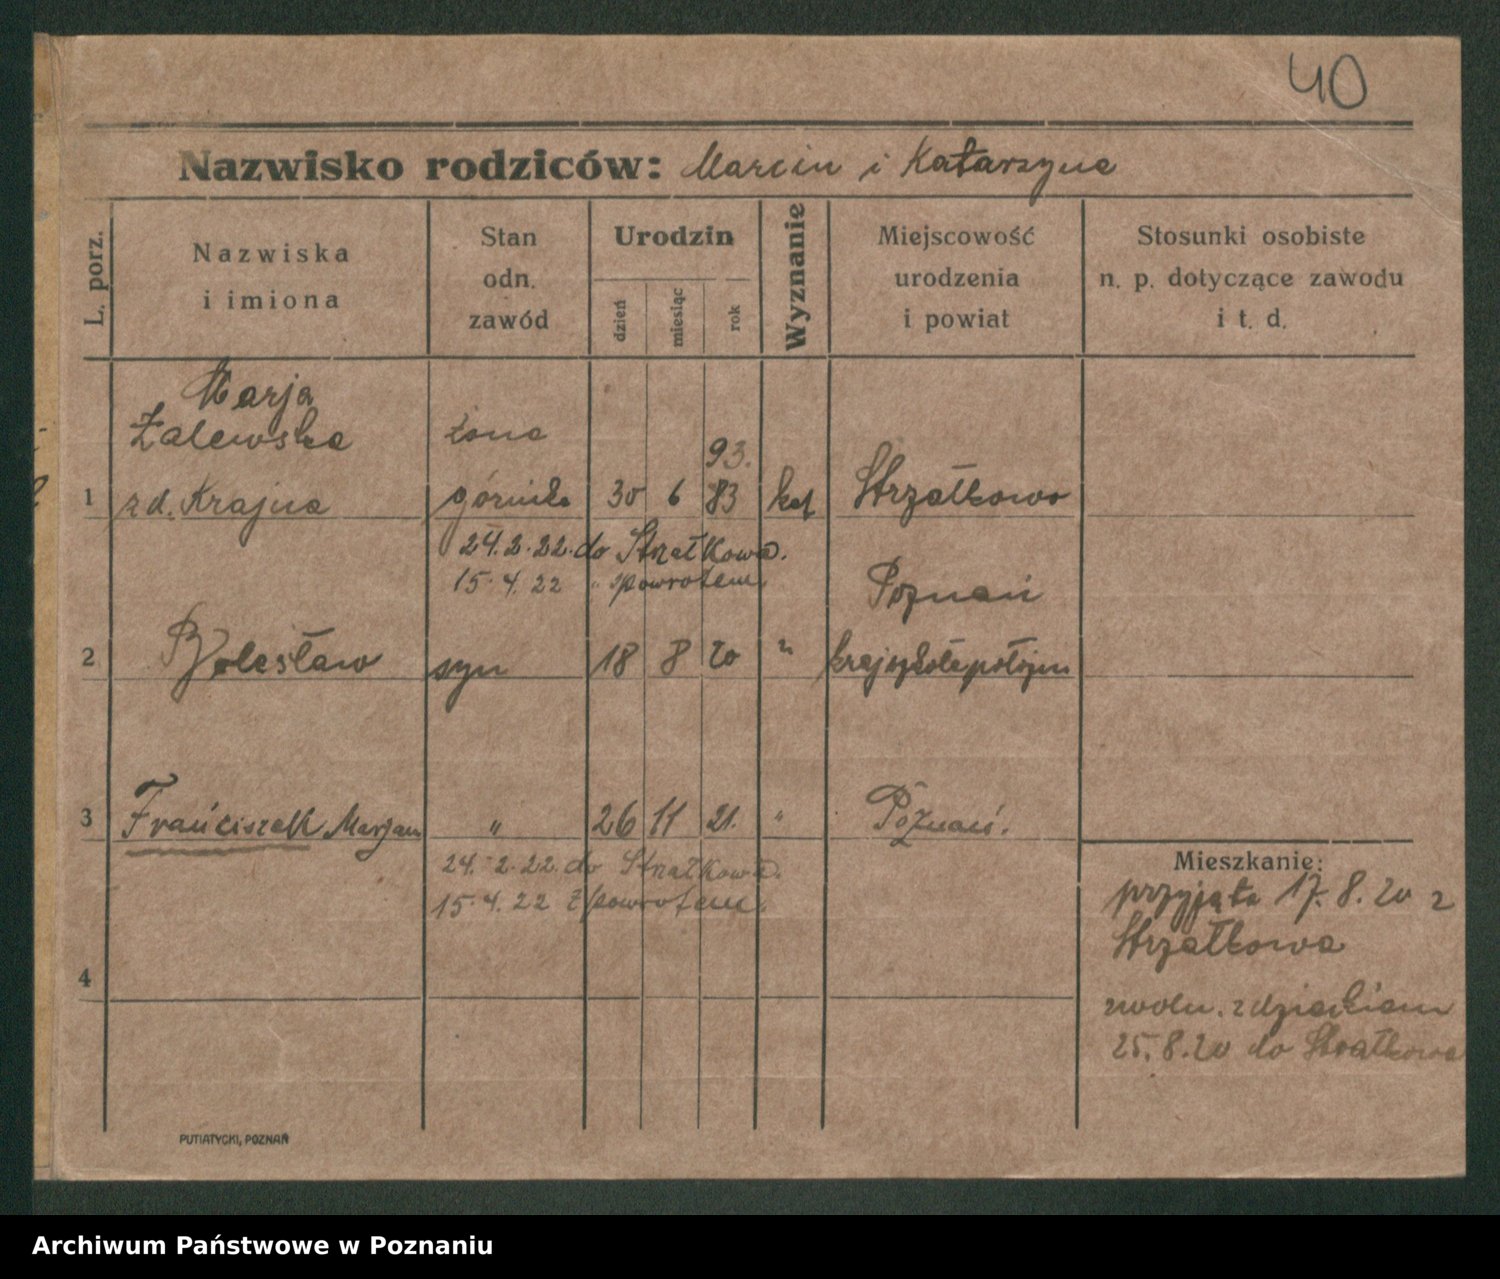 40
Nazwisko rodziców: Marcin i Katarzyna
L. porz.
Nazwiska
i imiona
Stan
odn.
zawód
Urodzin
dzień
miesiąc
rok
Wyznanie
Miejscowość
urodzenia
i powiat
Stosunki osobiste
n. p. dotyczące zawodu
i t. d.
Marja
Zalewska żona
93.
1 zd. Krajna górnika 30 6 83 kat Strzałkowo
24.2.22. do Strzałkowa.
15.4.22 " spowrotem
Poznań
2 Bolesław syn 18 8 20 "
3 Franciszek Marjan " 26 11 21. " Poznań.
24.2.22. do Strzałkowa.
15.4.22 z powrotem.
4
Mieszkanie:
przyjęta 17.8.20 z
Strzałkowa
zwoln. z dzieckiem
25.8.20 do Strzałkowa
PUTIATYCKI, POZNAŃ
Archiwum Państwowe w Poznaniu